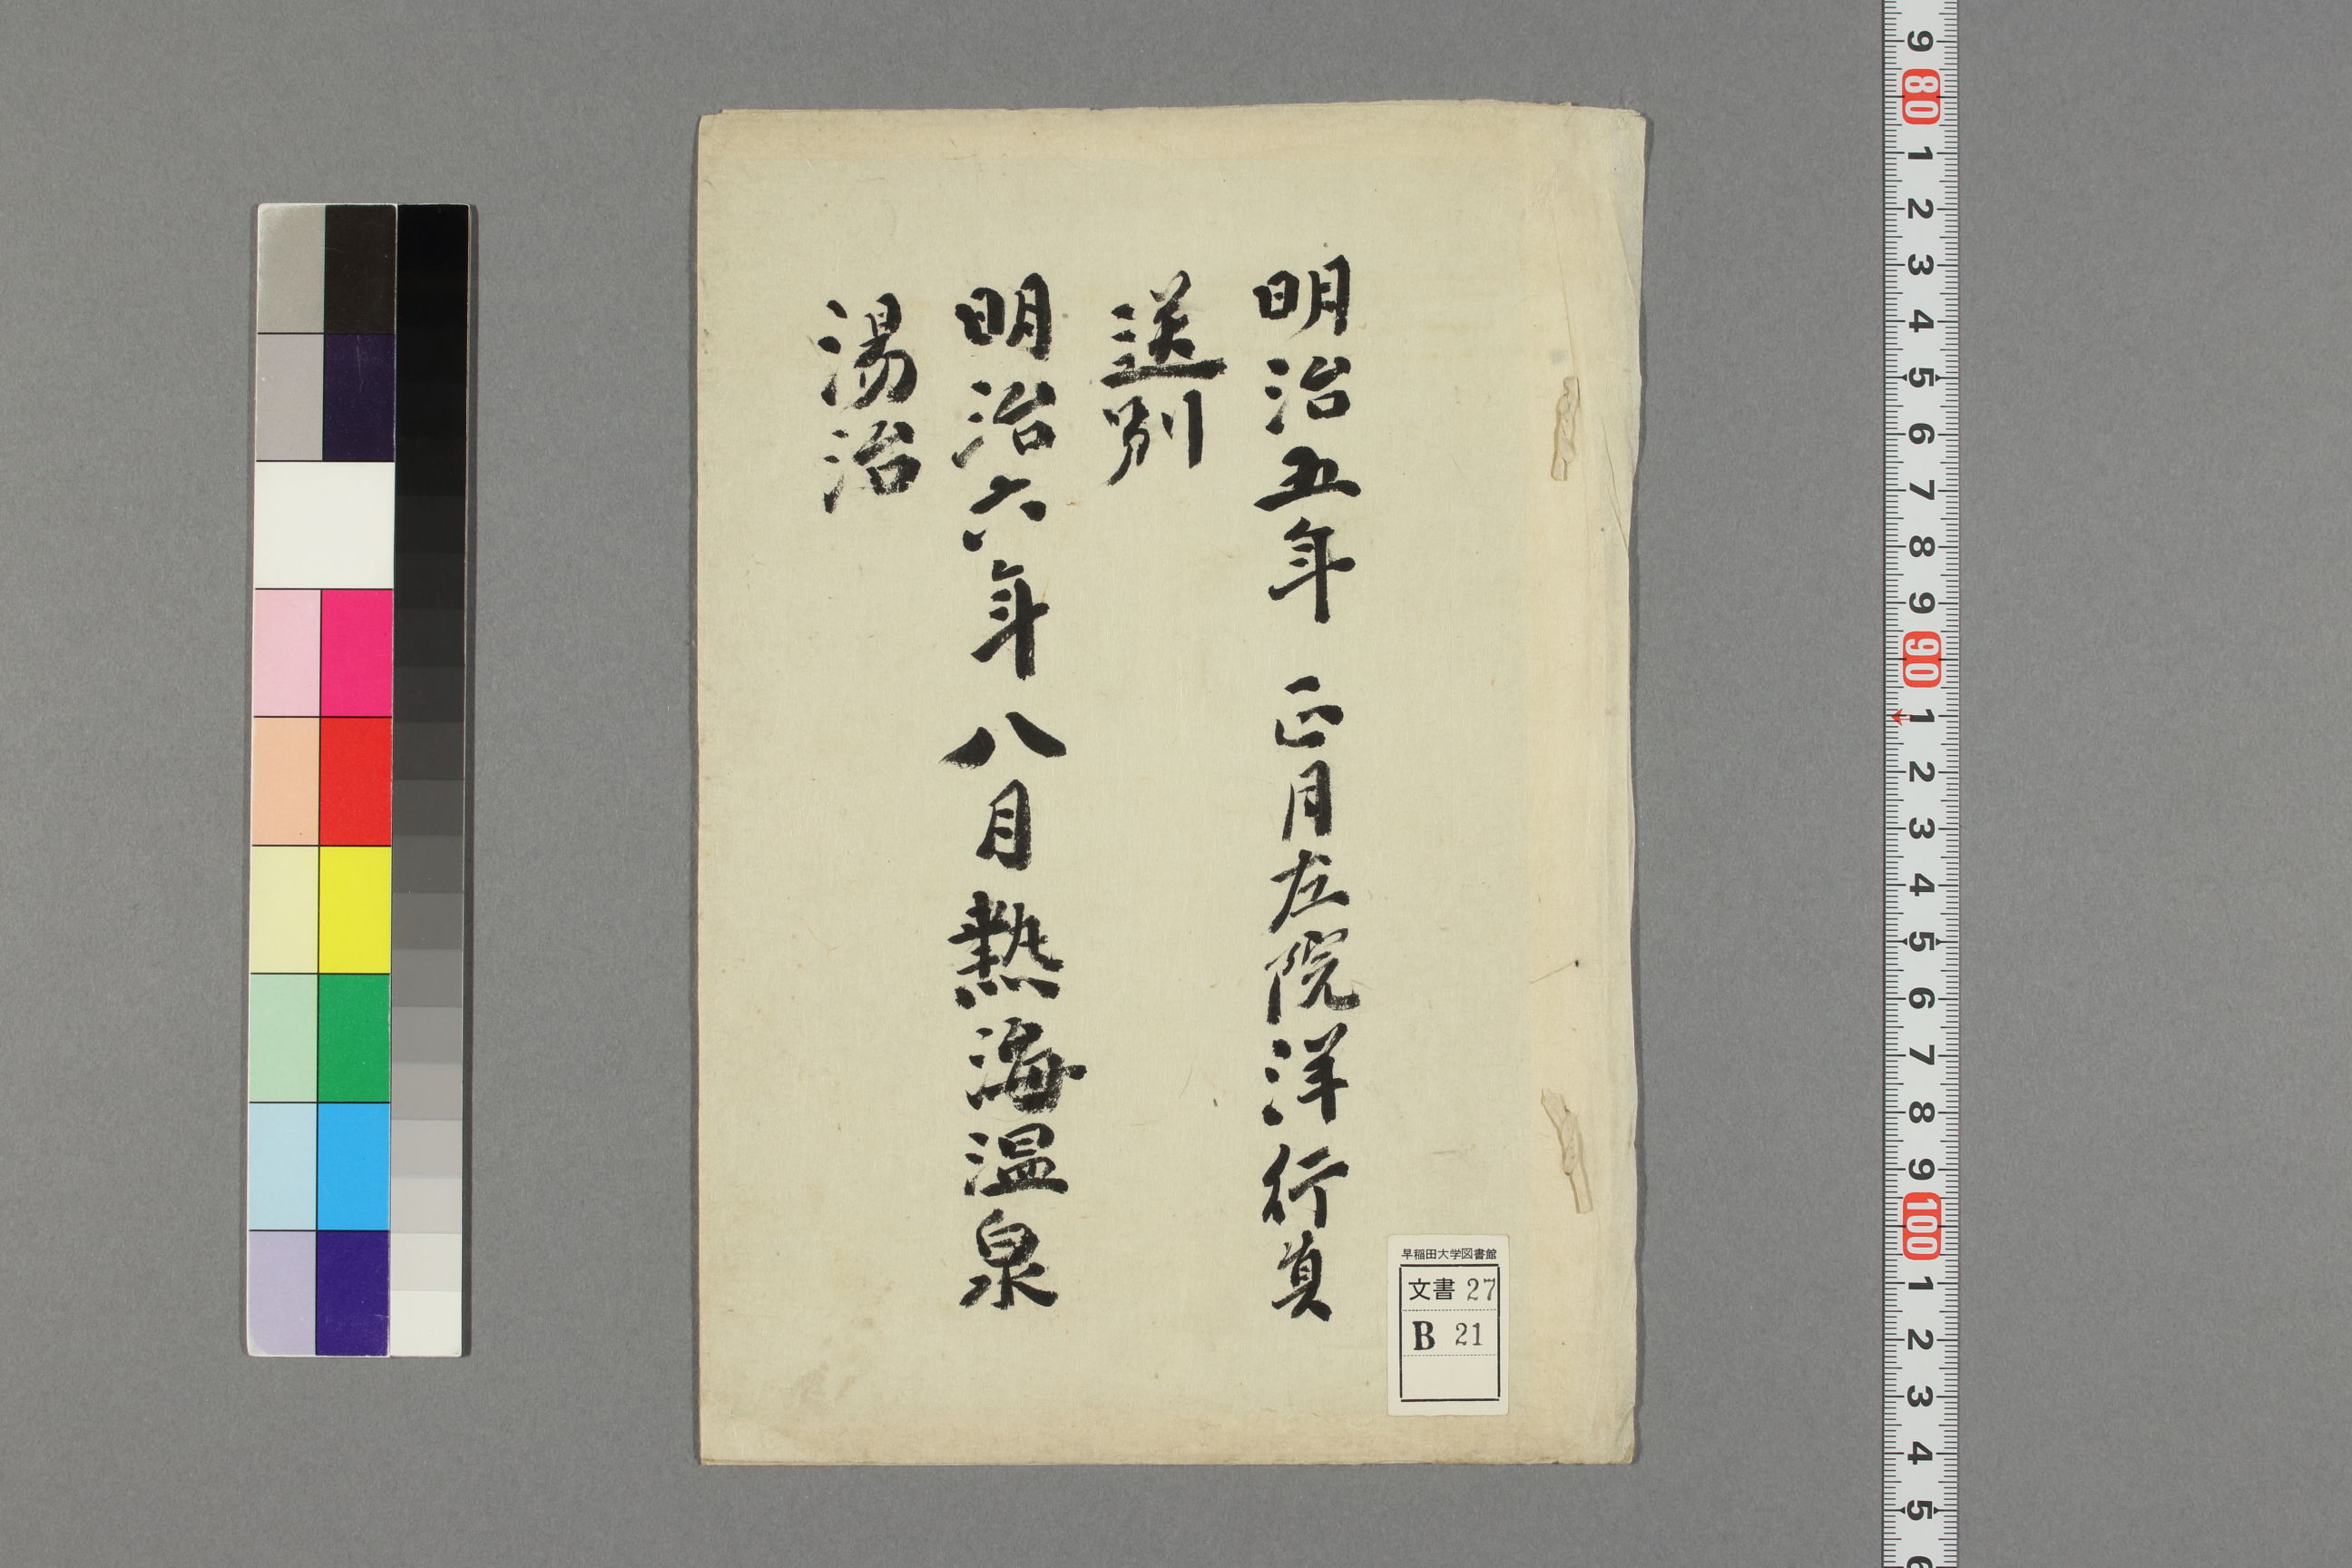 明治五年 正月左院洋行員
送別
明治六年 八月熱海温泉
湯治
早稲田大学図書館
文書 27
B 21
9
80
1
2
3
4
5
6
7
8
9
90
1
2
3
4
5
6
7
8
9
100
1
2
3
4
5
6